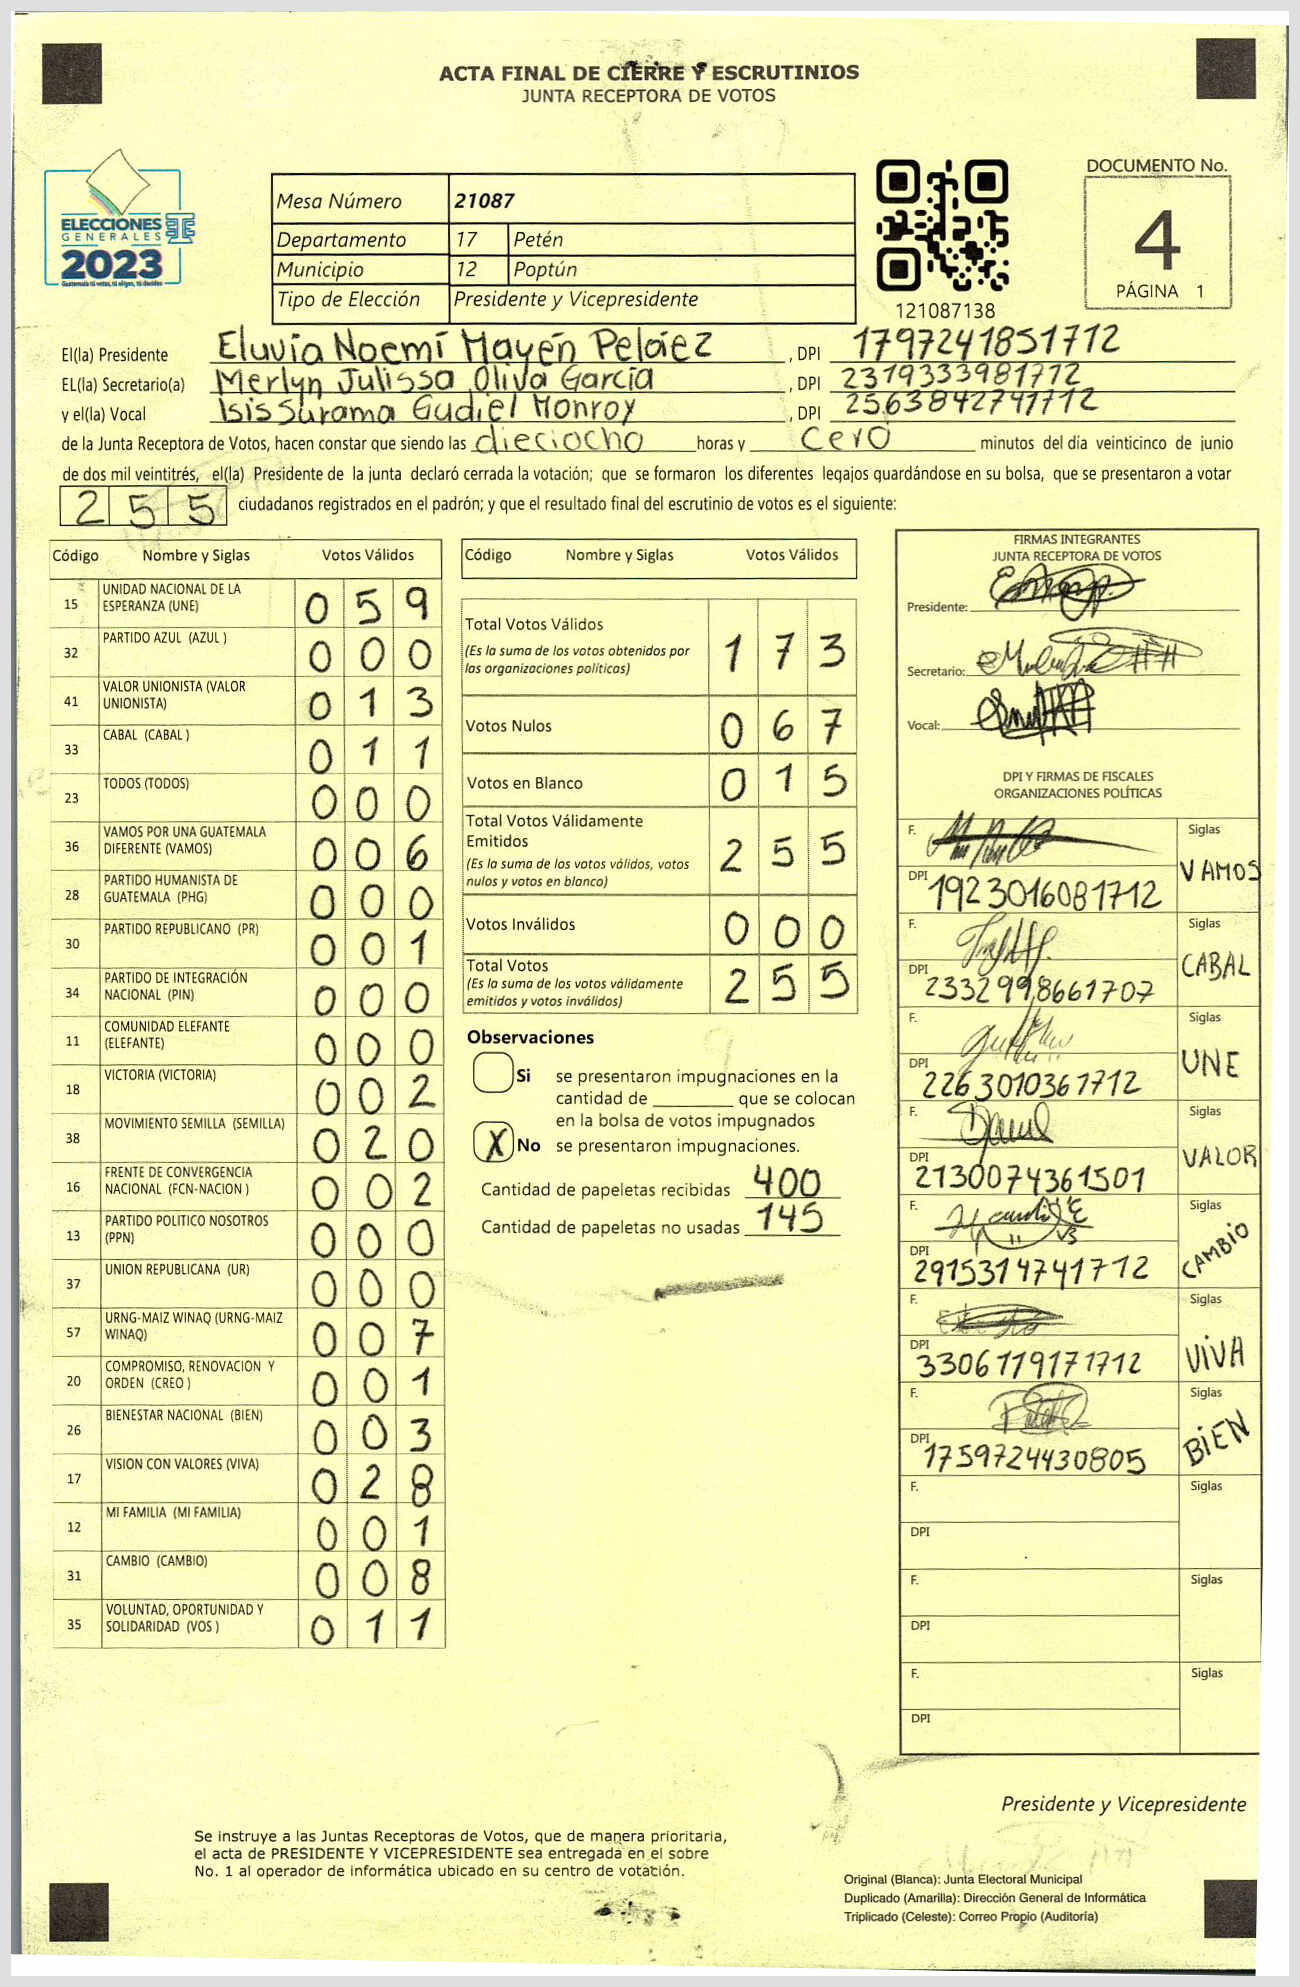 ACTA FINAL DE CIERRE Y ESCRUTINIOS
JUNTA RECEPTORA DE VOTOS
ELECCIONES
GENERALES
2023
Guatemala tú votas, tú eliges, tú decides
Mesa Número 21087
Departamento 17 Petén
Municipio 12 Poptún
Tipo de Elección Presidente y Vicepresidente
121087138
DOCUMENTO No.
4
PÁGINA 1
El(la) Presidente Eluvia Noemí Mayén Peláez, DPI 1797241851712
EL(la) Secretario(a) Merlyn Julissa Oliva García, DPI 2319333981712
y el(la) Vocal Isis Surama Gudiel Monroy, DPI 2563842741712
de la Junta Receptora de Votos, hacen constar que siendo las dieciocho horas y cero minutos del día veinticinco de junio
de dos mil veintitrés, el(la) Presidente de la junta declaró cerrada la votación; que se formaron los diferentes legajos guardándose en su bolsa, que se presentaron a votar
255 ciudadanos registrados en el padrón; y que el resultado final del escrutinio de votos es el siguiente:
Código Nombre y Siglas Votos Válidos
15 UNIDAD NACIONAL DE LA ESPERANZA (UNE) 059
32 PARTIDO AZUL (AZUL ) 000
41 VALOR UNIONISTA (VALOR UNIONISTA) 013
33 CABAL (CABAL ) 011
23 TODOS (TODOS) 000
36 VAMOS POR UNA GUATEMALA DIFERENTE (VAMOS) 006
28 PARTIDO HUMANISTA DE GUATEMALA (PHG) 000
30 PARTIDO REPUBLICANO (PR) 001
34 PARTIDO DE INTEGRACIÓN NACIONAL (PIN) 000
11 COMUNIDAD ELEFANTE (ELEFANTE) 000
18 VICTORIA (VICTORIA) 002
38 MOVIMIENTO SEMILLA (SEMILLA) 020
16 FRENTE DE CONVERGENCIA NACIONAL (FCN-NACION ) 002
13 PARTIDO POLITICO NOSOTROS (PPN) 000
37 UNION REPUBLICANA (UR) 000
57 URNG-MAIZ WINAQ (URNG-MAIZ WINAQ) 007
20 COMPROMISO, RENOVACION Y ORDEN (CREO ) 001
26 BIENESTAR NACIONAL (BIEN) 003
17 VISION CON VALORES (VIVA) 028
12 MI FAMILIA (MI FAMILIA) 001
31 CAMBIO (CAMBIO) 008
35 VOLUNTAD, OPORTUNIDAD Y SOLIDARIDAD (VOS ) 011
Código Nombre y Siglas Votos Válidos
Total Votos Válidos 173
(Es la suma de los votos obtenidos por
las organizaciones políticas)
Votos Nulos 067
Votos en Blanco 015
Total Votos Válidamente
Emitidos 255
(Es la suma de los votos válidos, votos
nulos y votos en blanco)
Votos Inválidos 000
Total Votos 255
(Es la suma de los votos válidamente
emitidos y votos inválidos)
Observaciones
Si se presentaron impugnaciones en la
cantidad de ________ que se colocan
en la bolsa de votos impugnados
X No se presentaron impugnaciones.
Cantidad de papeletas recibidas 400
Cantidad de papeletas no usadas 145
FIRMAS INTEGRANTES
JUNTA RECEPTORA DE VOTOS
Presidente:
Secretario:
Vocal:
DPI Y FIRMAS DE FISCALES
ORGANIZACIONES POLÍTICAS
F. Siglas
DPI 1923016081712 VAMOS
F. Siglas
DPI 2332998661707 CABAL
F. Siglas
DPI 2263010361712 UNE
F. Siglas
DPI 2130074361501 VALOR
F. Siglas
DPI 2915314741712 CAMBIO
F. Siglas
DPI 3306119171712 VIVA
F. Siglas
DPI 1759724430805 BIEN
F. Siglas
DPI
F. Siglas
DPI
F. Siglas
DPI
Presidente y Vicepresidente
Se instruye a las Juntas Receptoras de Votos, que de manera prioritaria,
el acta de PRESIDENTE Y VICEPRESIDENTE sea entregada en el sobre
No. 1 al operador de informática ubicado en su centro de votación.
Original (Blanca): Junta Electoral Municipal
Duplicado (Amarilla): Dirección General de Informática
Triplicado (Celeste): Correo Propio (Auditoría)